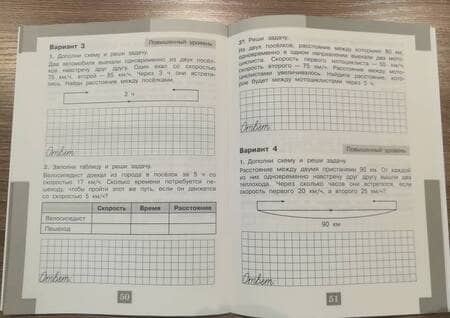 Вариант 3
Повышенный уровень
1. Дополни схему и реши задачу.
Два автомобиля выехали одновременно из двух посёл-
ков навстречу друг другу. Один ехал со скоростью
75 км/ч, второй — 85 км/ч. Через 3 ч они встрети-
лись. Найди расстояние между посёлками.
Ответ
2. Заполни таблицу и реши задачу.
Велосипедист доехал из города в посёлок за 5 ч со
скоростью 17 км/ч. Сколько времени потребуется пе-
шеходу, чтобы пройти этот же путь, если он движется
со скоростью 5 км/ч?
Скорость Время Расстояние
Велосипедист
Пешеход
Ответ
50
Реши задачу.
Из двух посёлков, расстояние между которыми
одновременно в одном направлении выехали два мото-
циклиста. Скорость первого мотоциклиста —
скорость второго — 75 км/ч. Расстояние между мото-
циклистами увеличивалось. Найдите расстояние, кото-
рое будет между мотоциклистами через 5 ч.
Ответ
Вариант 4
Повышенный уровень
1. Дополни схему и реши задачу.
Расстояние между двумя пристанями 90 км. От каждой
из них одновременно навстречу друг другу вышли два
теплохода. Через сколько часов они встретились, если
скорость первого 20 км/ч, а второго 25 км/ч?
90 км
Ответ
51